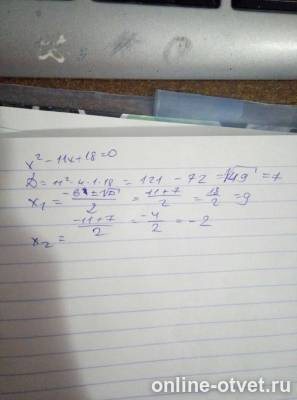 x² - 11x + 18 = 0
D = 11² - 4·1·18 = 121 - 72 = √49 = 7
x₁ = = (11+7)/2 = 18/2 = 9
(-11+7)/2 = -4/2 = -2
x₂ =
online-otvet.ru